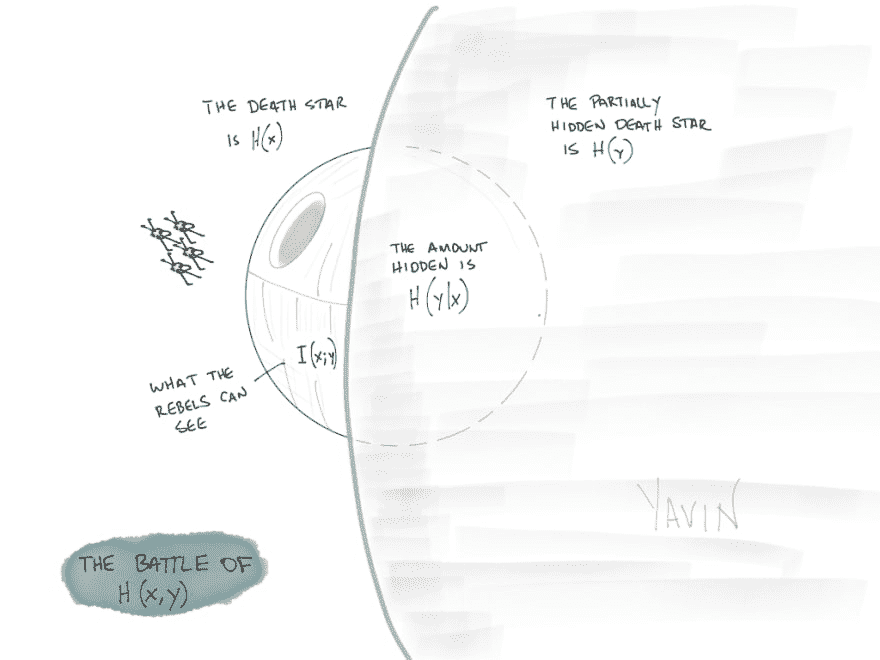 THE DEATH STAR
IS H(x)
THE PARTIALLY
HIDDEN DEATH STAR
IS H(y)
THE AMOUNT
HIDDEN IS
H(y|x)
I(x;y)
WHAT THE
REBELS CAN
SEE
YAVIN
THE BATTLE OF
H(x,y)